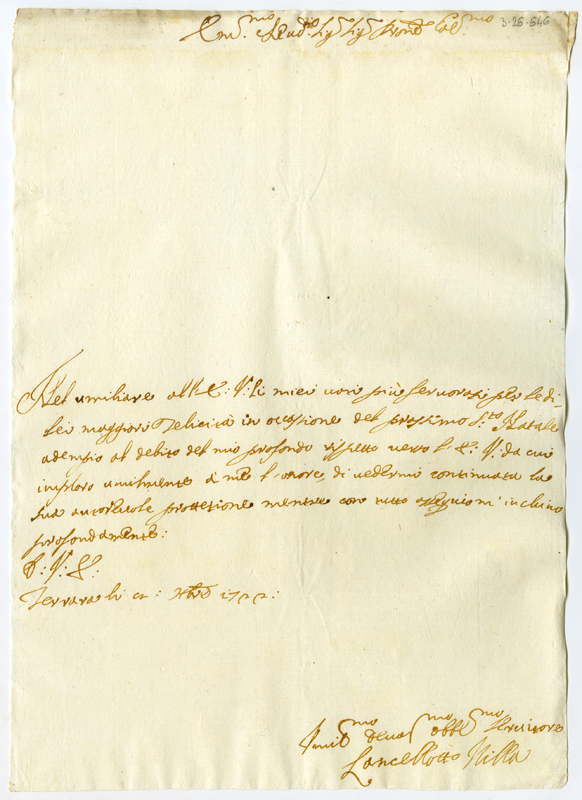 Em.mo e Reud.mo Sig.r Sig.r Pron.e Col.mo
3-26-546
Nel umiliare all'E: V: li miei voti più fervorosi per le di
Lei maggiori Felicità in occasione del prossimo S.to Natale
adempio al debito del mio profondo rispetto verso l'E: V: da cui
imploro umilmente à me l'onore, di vedermi continuata la
sua autorevole prottezione mentre con tutto ossequio m'inchino
profondamente:
D: V: E:
Ferrara li 22: Xbre 1722:
Umil.mo Deuo.mo obbl.mo Seruitore
Lancellotto Villa